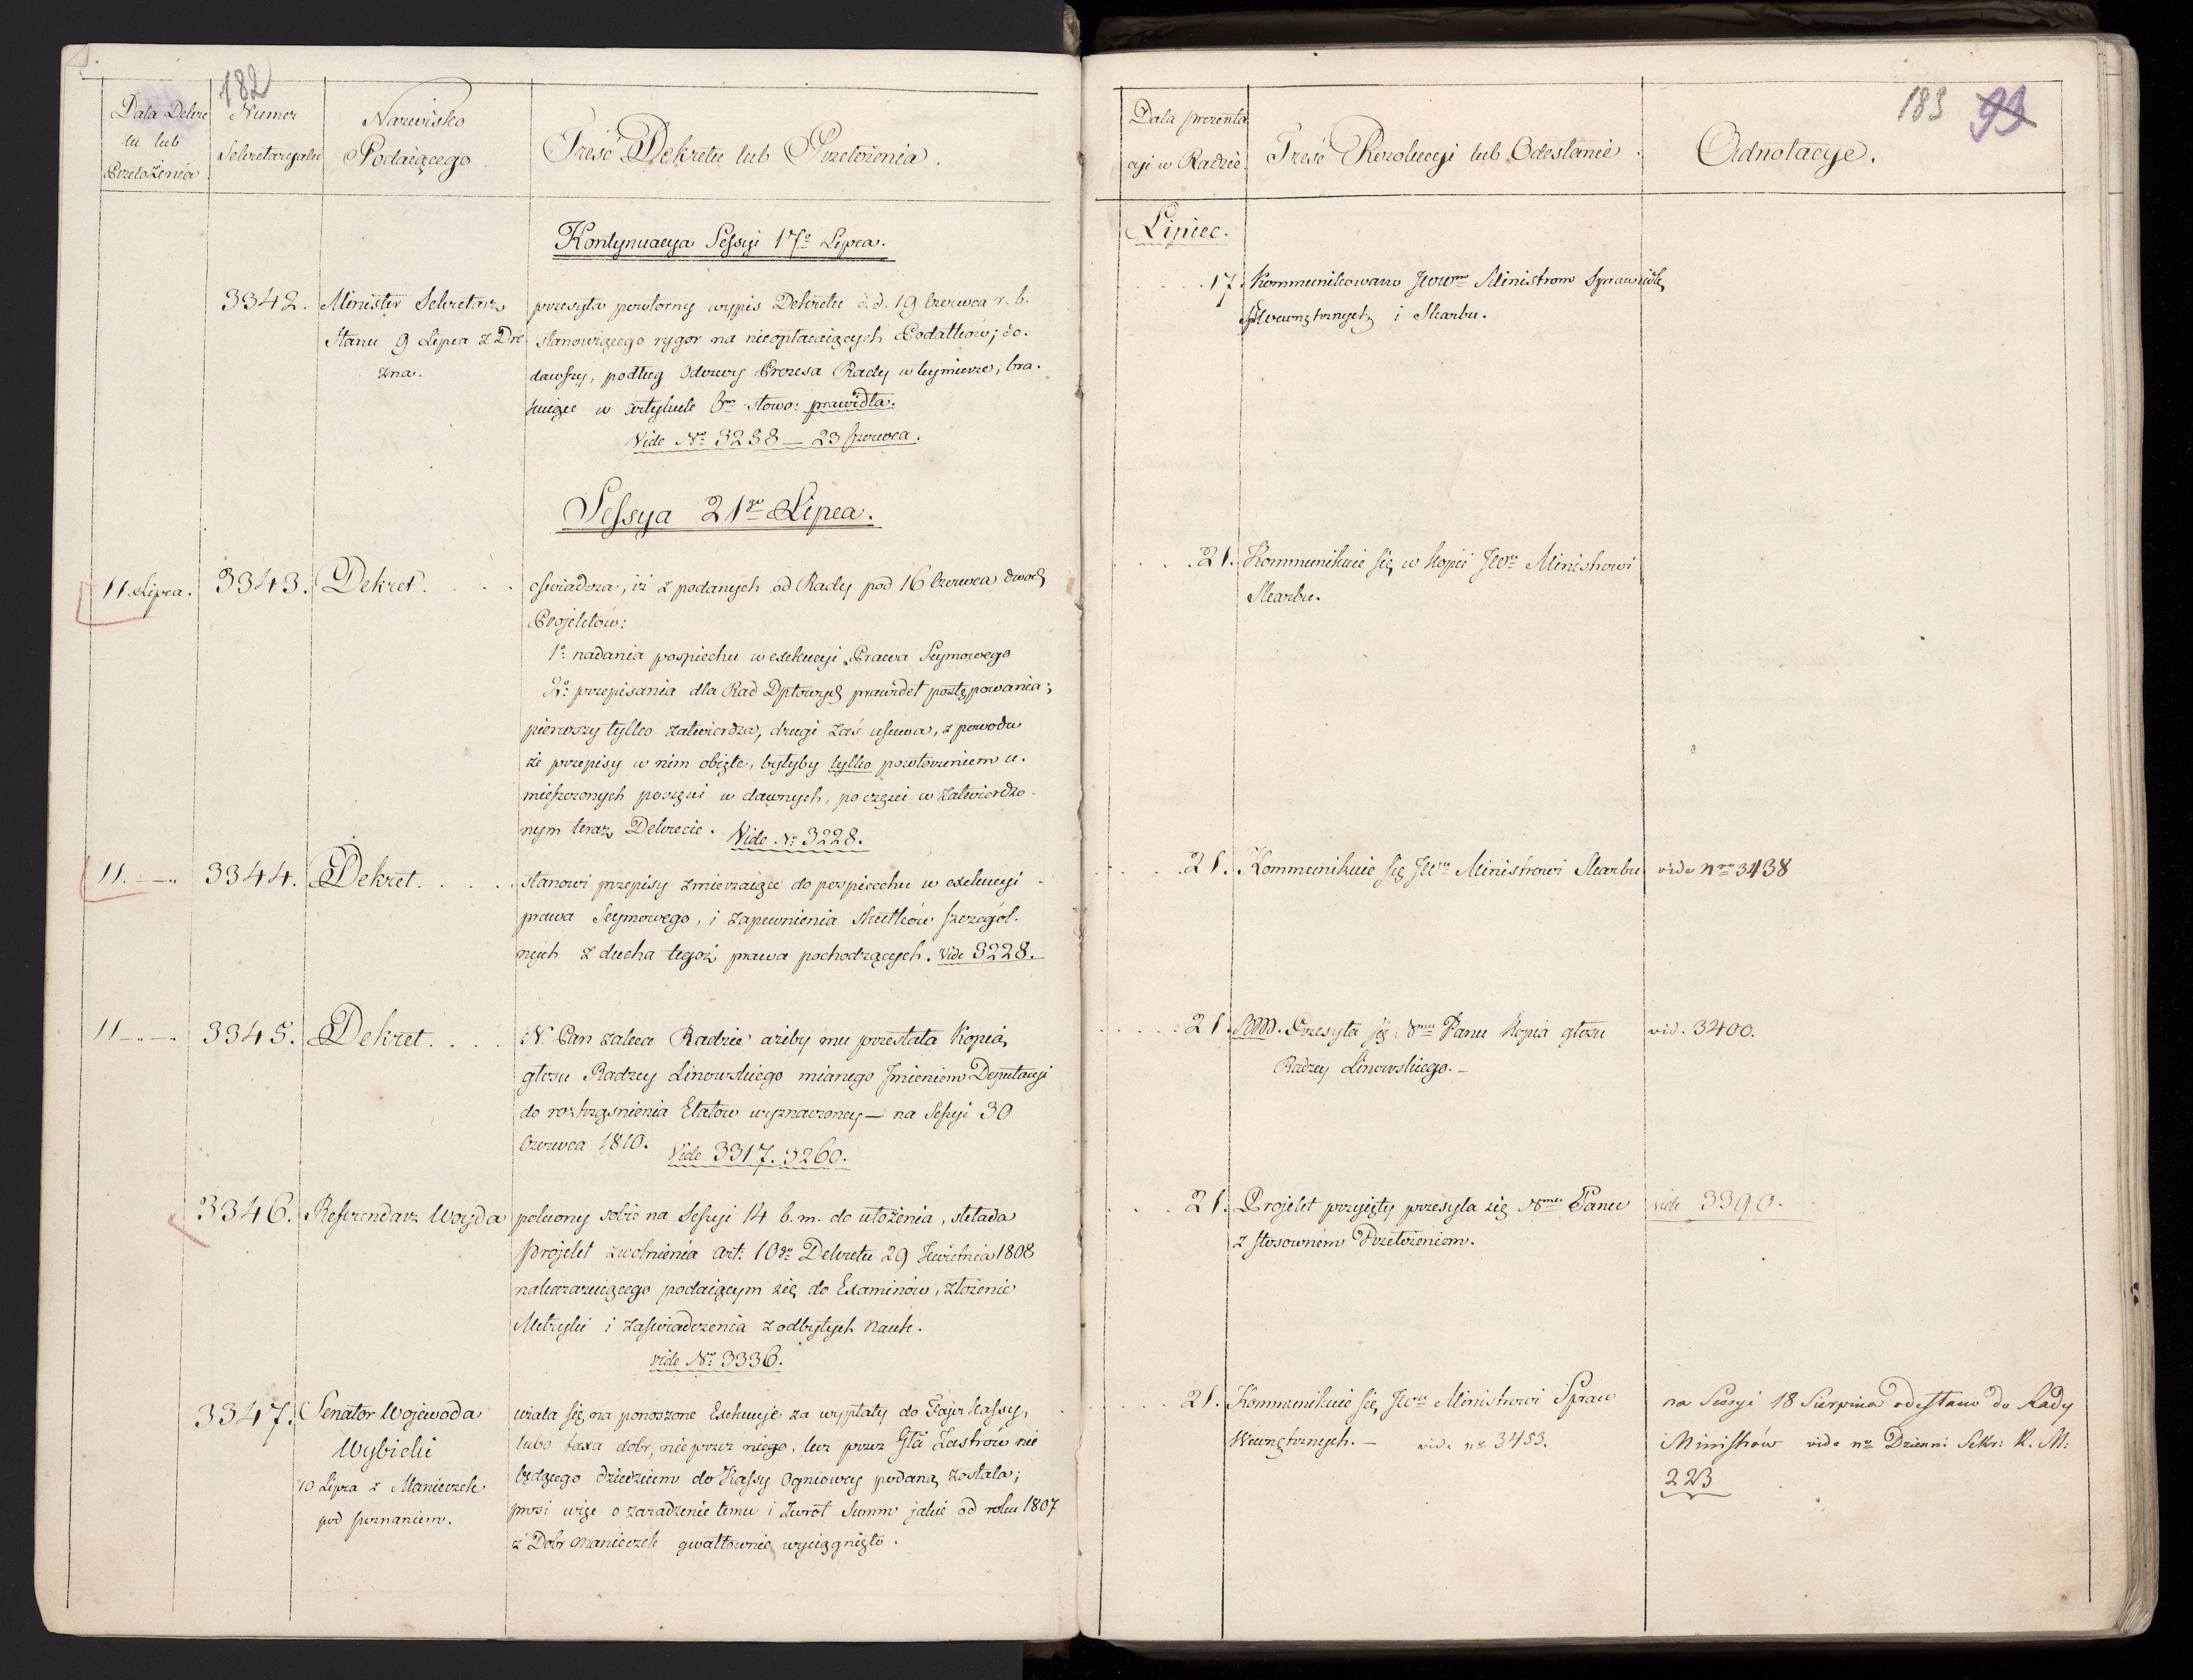 182
Data Dekre
tu lub
Przełożenia
Numer
Sekretaryatu
Nazwisko
Podaiącego
Treść Dekretu lub Przełożenia.
Kontynuacya Sessyi 17º Lipca.
3342.
Minister Sekretarz
Stanu 9 Lipca z Dre
zna.
przesyła powtorny wypis Dekretu d. d. 19 Czerwca r. b.
stanowiącego rygor na nieopłacaiących Podatków; do.
dawszy, podług Odezwy Prezesa Rady w tey mierze, bra.
kuiące w artykule 6m słowo: prawidła.
Vide No 3238 — 23 Czerwca.
Sessya 21go Lipca.
11 Lipca.
3343.
Dekret.
oświadcza, iż z podanych od Rady pod 16 Czerwca dwoch
Projektów:
1º nadania pospiechu w exekucyi Prawa Seymowego
2º przepisania dla Rad Dptowych prawideł postępowania;
pierwszy tylko zatwierdza, drugi zaś usuwa, z powodu
że przepisy w nim obięte, byłyby tylko powtorzeniem u.
mieszczonych poczęści w dawnych, po częsci w zatwierdzo-
nym teraz Dekrecie. Vide No 3228.
11. — „
3344.
Dekret.
stanowi przepisy zmierzaiące do pospiechu w exekucyi
prawa Seymowego, i zapewnienia skutków szczegól.
nych z ducha tegoż prawa pochodzących. Vide 3228.
11 — „ —
3345.
Dekret.
N. Pan zaleca Radzie ażeby mu przesłała Kopią
głosu Radzcy Linowskiego mianego Jmieniem Deputacyi
do roztrząsnienia Etatów wyznaczoney — na Sessyi 30
Czerwca 1810. Vide 3317. 3260.
3346.
Referendarz Woyda
polecony sobie na Sessyi 14 b. m. do ułożenia, składa
projekt zwolnienia art: 10go Dekretu 29 Kwietnia 1808
nakazuiącego podaiącym się do Examinów, złożenie
Metryki i zaświadczenia z odbytych Nauk.
vide No 3336.
3347.
Senator Wojewoda
Wybicki
10 Lipca z Manieczek
pod Poznaniem.
użala się na ponoszone Exekucye za wypłaty do Fajer kassy,
lubo taxa dobr, nie przez niego, lecz przez Gła Zastrow nie
będącego dziedzicem do Kassy Ogniowey podaną została;
prosi więc o zaradzenie temu i Zwrot Summ jakie od roku 1807
z Dobr Manieczek gwałtownie wyciągnięto.
183 93
Data prezenta
cyi w Radzie.
Treść Rezolucyi lub Odesłanie.
Adnotacye.
Lipiec.
17.
Kommunikowano JWWm Ministrom Sprawiedli,
Spr Wewnętrznych i Skarbu.
21.
Kommunikuie się w kopii JWu Ministrowi
Skarbu.
21.
Kommunikuie się JWu Ministrowi Skarbu
vide nro 3438
21.
Przesyła się Nmu Panu Kopia głosu
Radzcy Linowskiego. —
vid. 3400.
21.
Projekt przyięty przesyła się Nmu Panu
z stosownem Przełożeniem.
vide 3390.
21.
Kommunikuie się JWu Ministrowi Spraw
Wewnętrznych. — vide no 3453.
na Sessyi 18 Sierpnia odesłano do Rady
Ministrów vide no Dzienni Sekr: R. M:
223